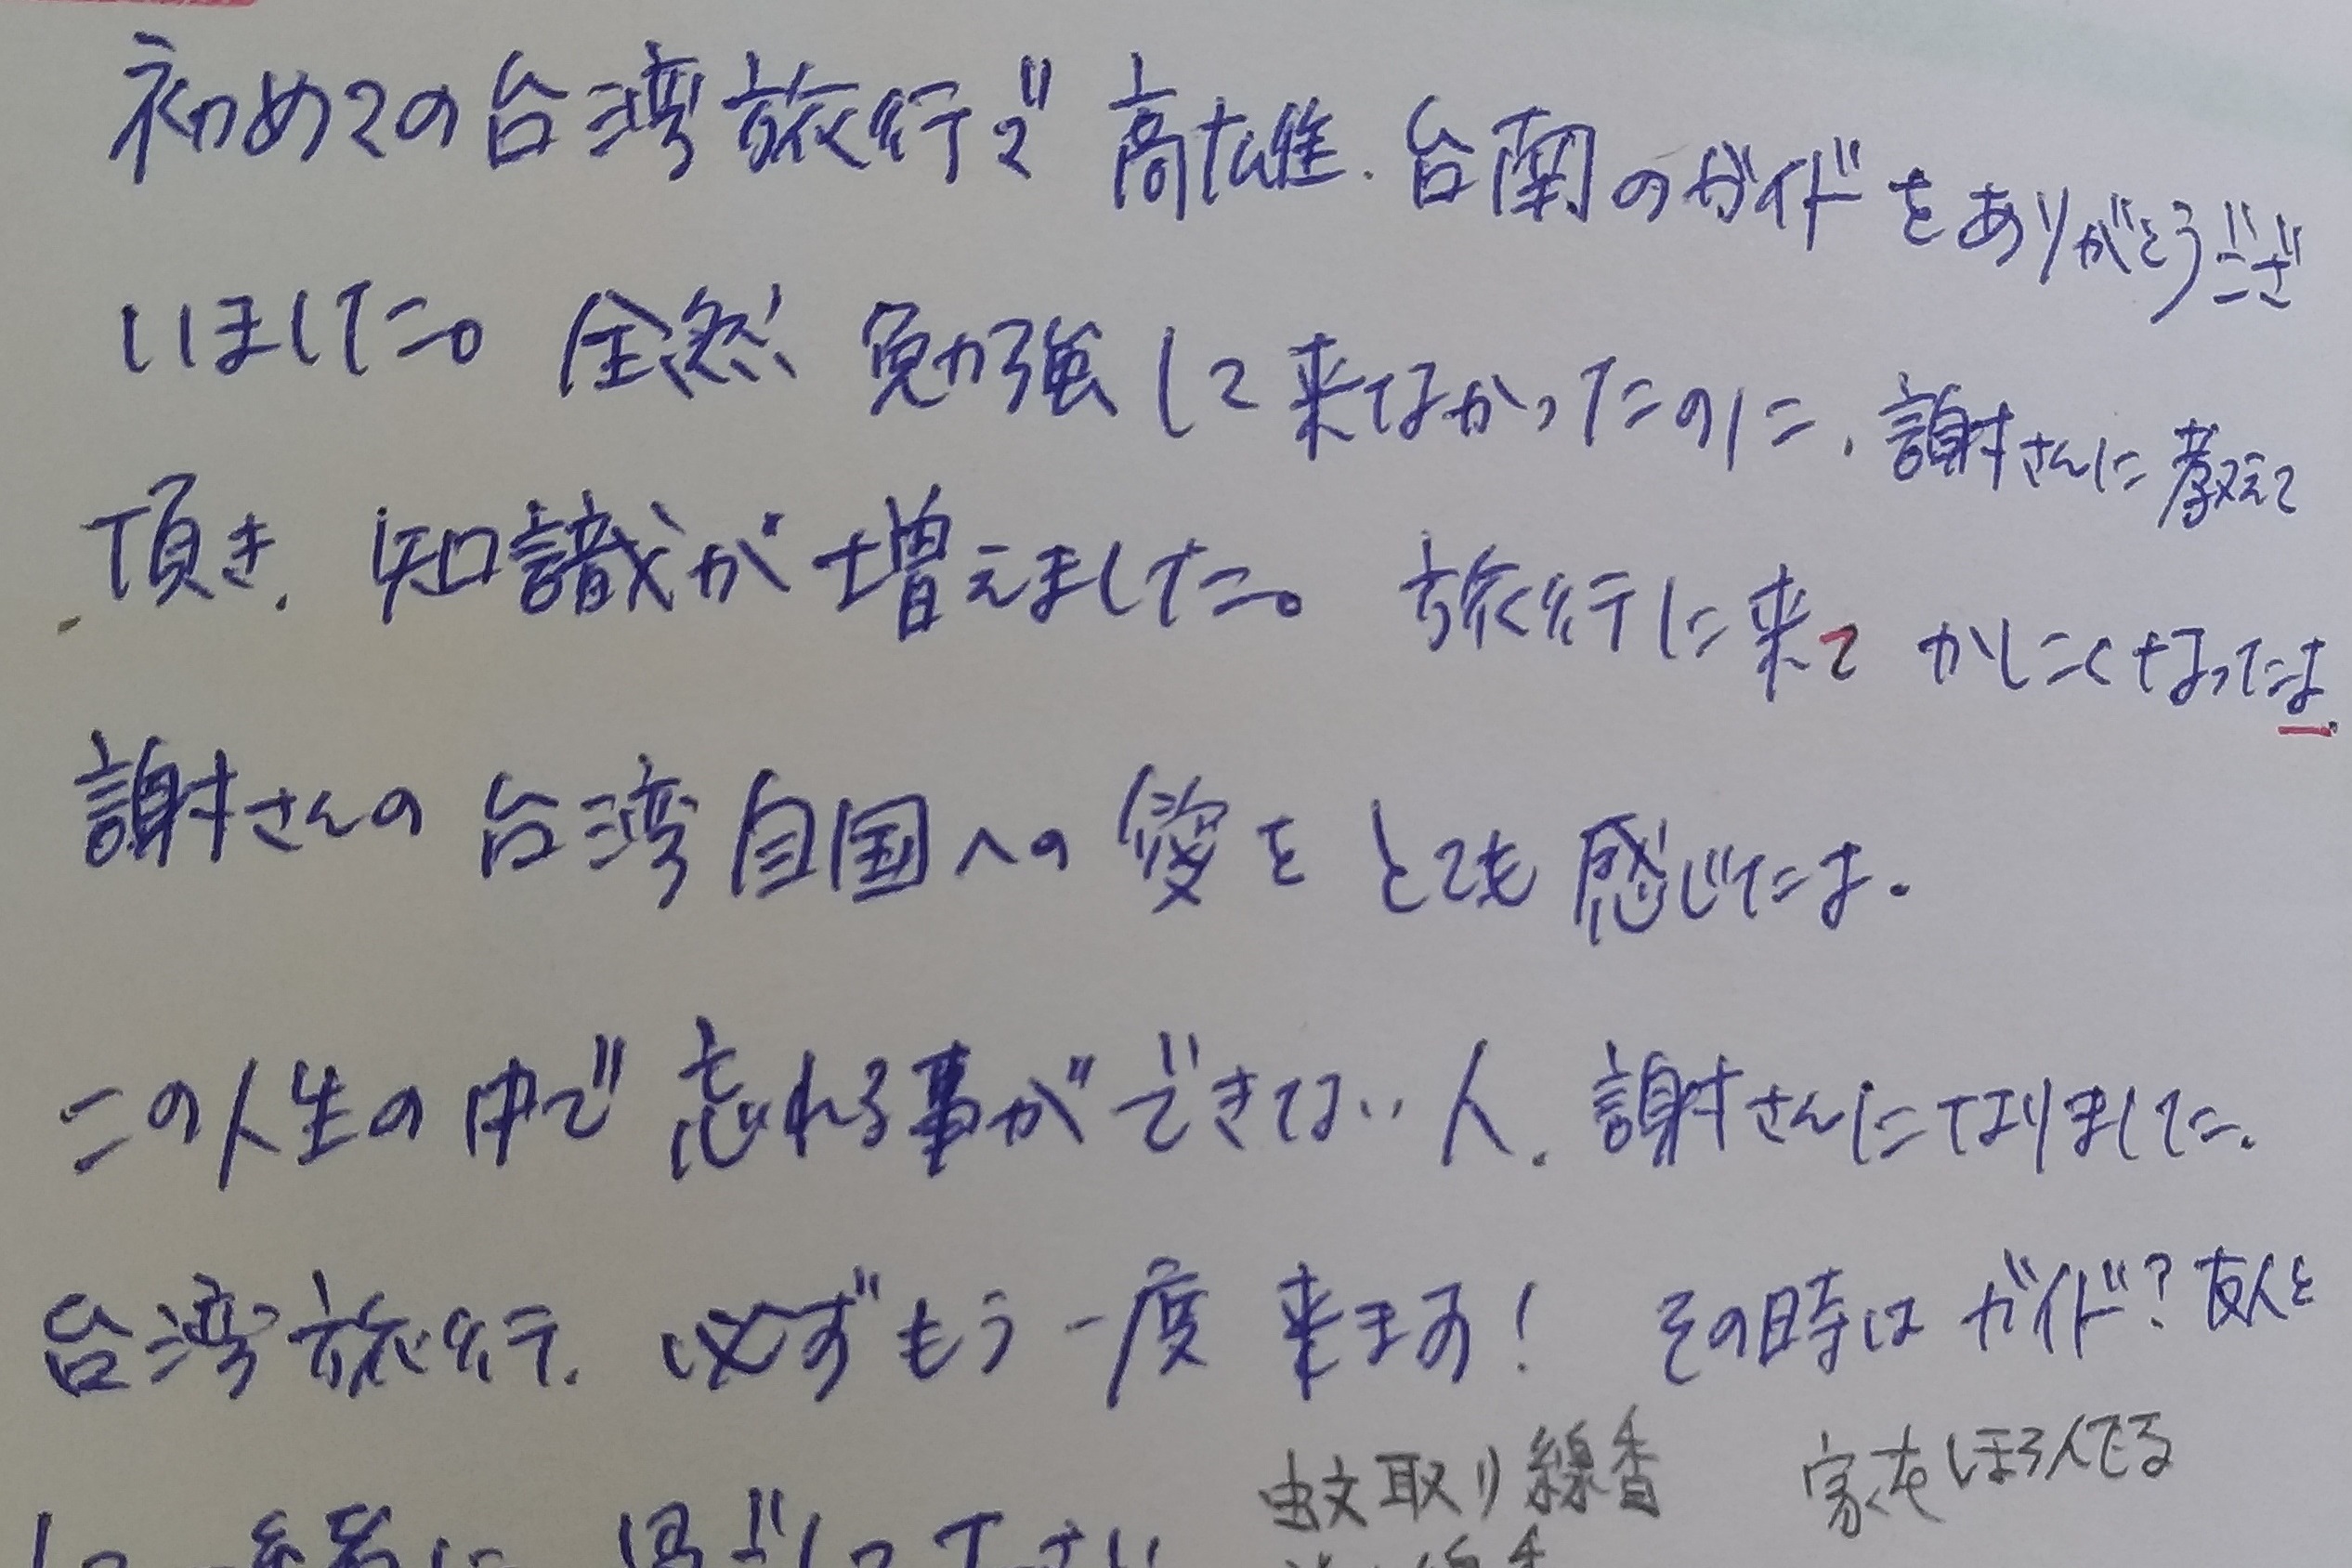 初めての台湾旅行で高雄、台南のガイドをありがとうござ
いました。全然勉強して来なかったのに、謝さんに教えて
頂き、知識が増えました。旅行に来てかしこくなったよ。
謝さんの台湾自国への愛をとても感じたよ。
この人生の中で忘れる事ができない人、謝さんになりました。
台湾旅行、必ずもう一度来ます！その時はガイド？友人と
蚊取り線香
して一緒に過ごして下さい